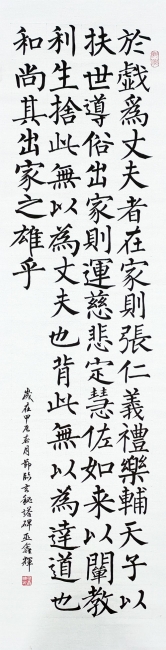 於戲為丈夫者在家則張仁義禮樂輔天子以
扶世導俗出家則運慈悲定慧佐如来以闡教
利生捨此無以為丈夫也背此無以為達道也
和尚其出家之雄乎
歲在甲辰五月節臨玄秘塔碑 巫鑫輝